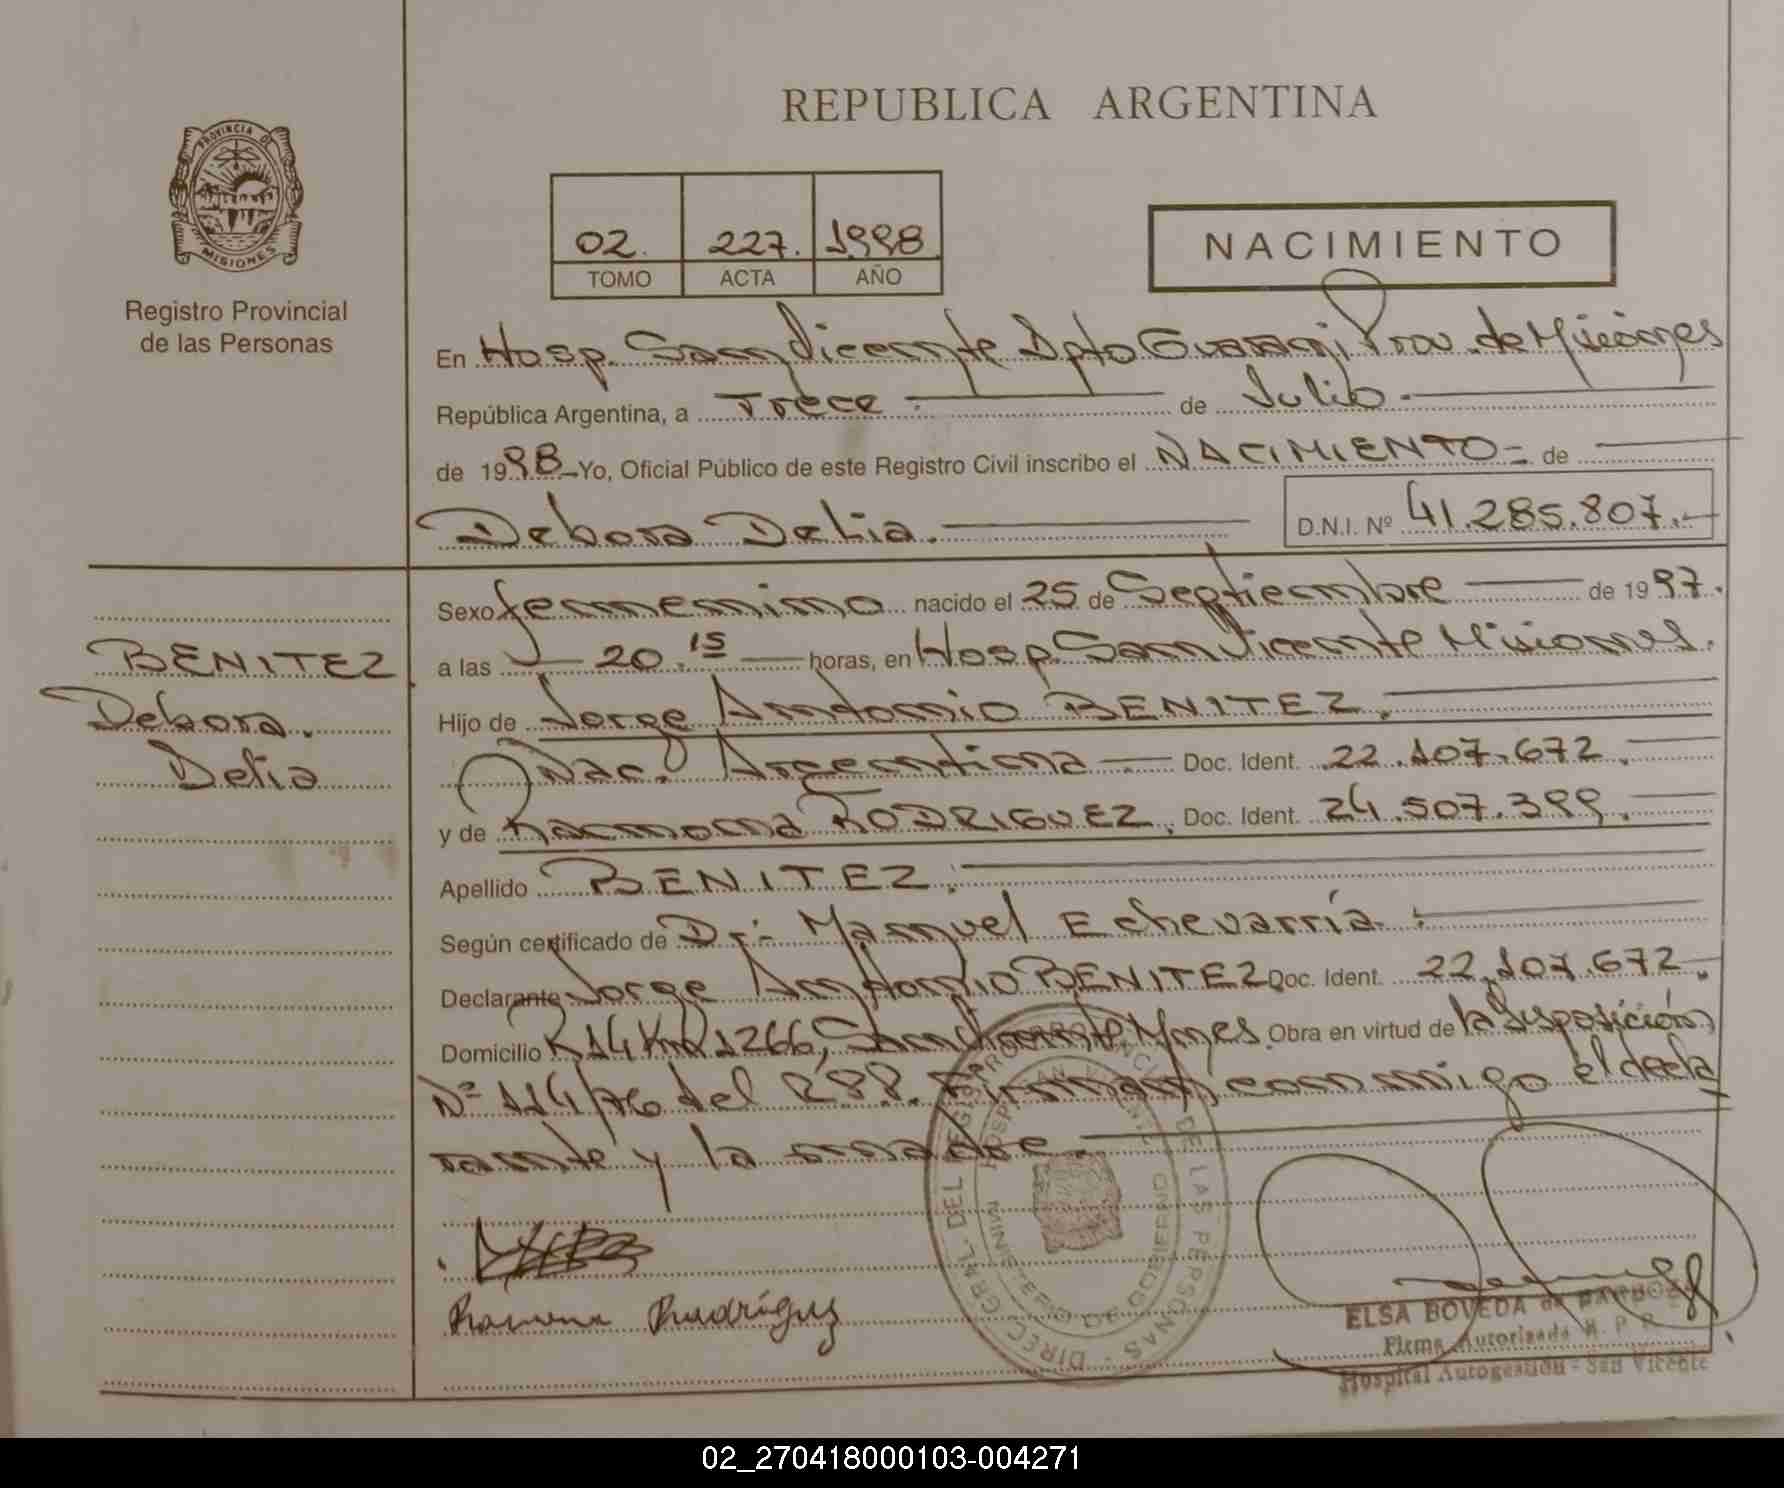 REPUBLICA ARGENTINA
PROVINCIA DE
MISIONES
Registro Provincial
de las Personas
02. 227. 1998
TOMO ACTA AÑO
NACIMIENTO
En Hosp. San Vicente Dpto Guarani Prov. de Misiones
República Argentina, a Trece de Julio
de 1998 Yo, Oficial Público de este Registro Civil inscribo el NACIMIENTO de
Debora Delia. D.N.I. Nº 41.285.807.
BENITEZ
Debora.
Delia
Sexo femenino nacido el 25 de Septiembre de 1997.
a las 20.15 horas, en Hosp. San Vicente Misiones.
Hijo de Jorge Antonio BENITEZ.
Nac. Argentina Doc. Ident. 22.107.672.
y de Ramona RODRIGUEZ. Doc. Ident. 24.507.399.
Apellido BENITEZ.
Según certificado de Dr: Manuel Echevarría.
Declarante Jorge Antonio BENITEZ Doc. Ident. 22.107.672.
Domicilio R 14 Km 1266, San Vicente Mnes. Obra en virtud de la disposición
Nº 114/76 del R Firman conmigo el decla
rante y la madre.
DIREC. GRAL. DEL REGISTRO PROVINCIAL DE LAS PERSONAS
HOSP. SAN VICENTE
MINISTERIO DE GOBIERNO
Ramona Rodríguez
ELSA BOVEDA de BARBOZA
Firma Autorizada R. P. P.
Hospital Autogestión - San Vicente
02_270418000103-004271